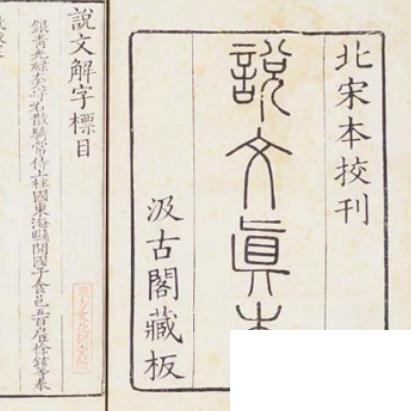 北宋本挍刊
說文眞本
汲古閣藏板
說文解字標目
銀青光祿大夫守右散騎常侍上柱國東海縣開國子食邑五百戶臣徐鉉等奉